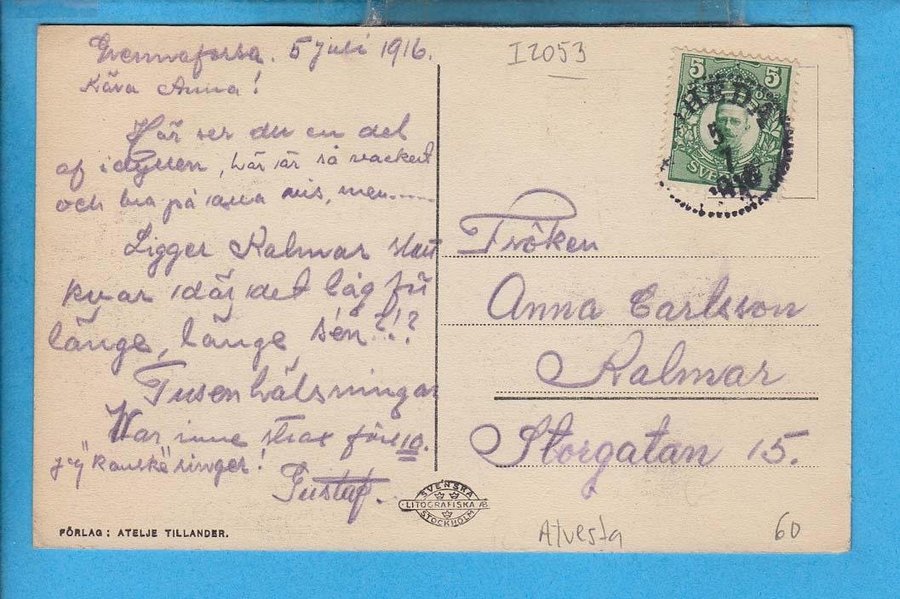 Grennaforsa. 5 juli 1916.
Kära Anna!
Här ser du en del
af idyllen, här är så vackert
och bra på alla vis, men......
Ligger Kalmar slott
kvar där det låg för
länge, länge sén?!?
Tusen hälsningar
Var inne strax före 10.
jag kanske ringer!
Gustaf.
FÖRLAG: ATELJE TILLANDER.
SVENSKA
LITOGRAFISKA AB
STOCKHOLM
I2053
5 5
SVERIGE
5
7
Fröken
Anna Carlsson
Kalmar
Storgatan 15.
Alvesta
60